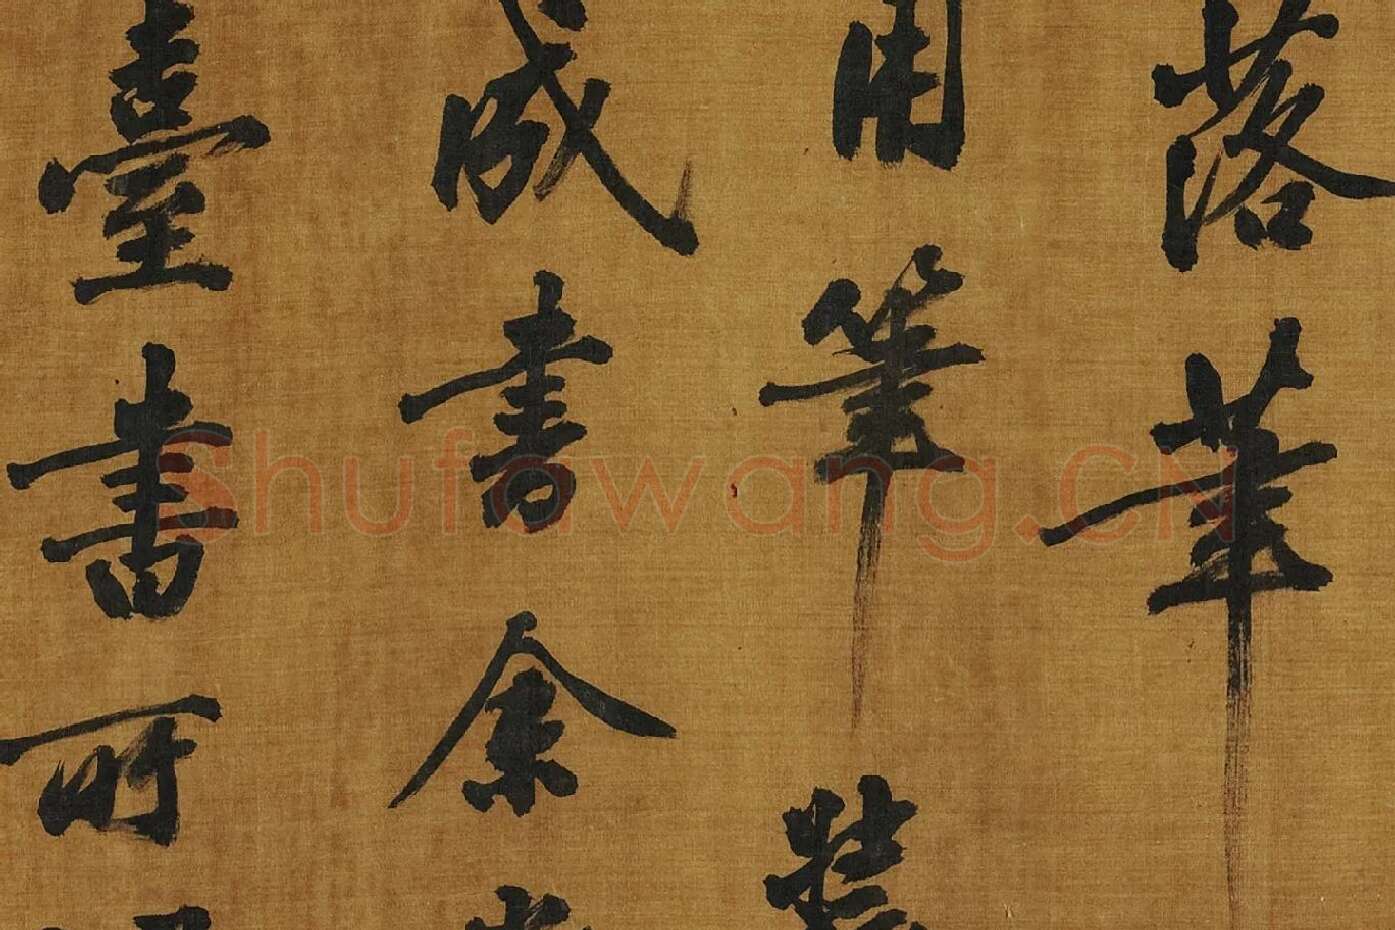 落筆
用筆
成書余
臺書所
Shufawang.CN